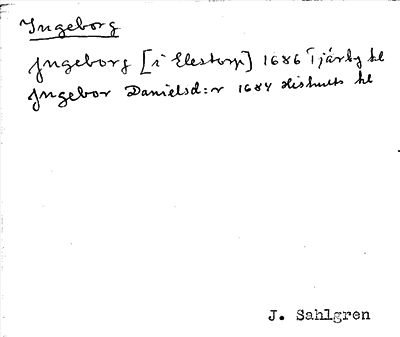 Ingeborg
Jngeborg [i Elestorp] 1686 Tjärby kl
Jngebor Danielsd:r 1684 Hishults kl
J. Sahlgren